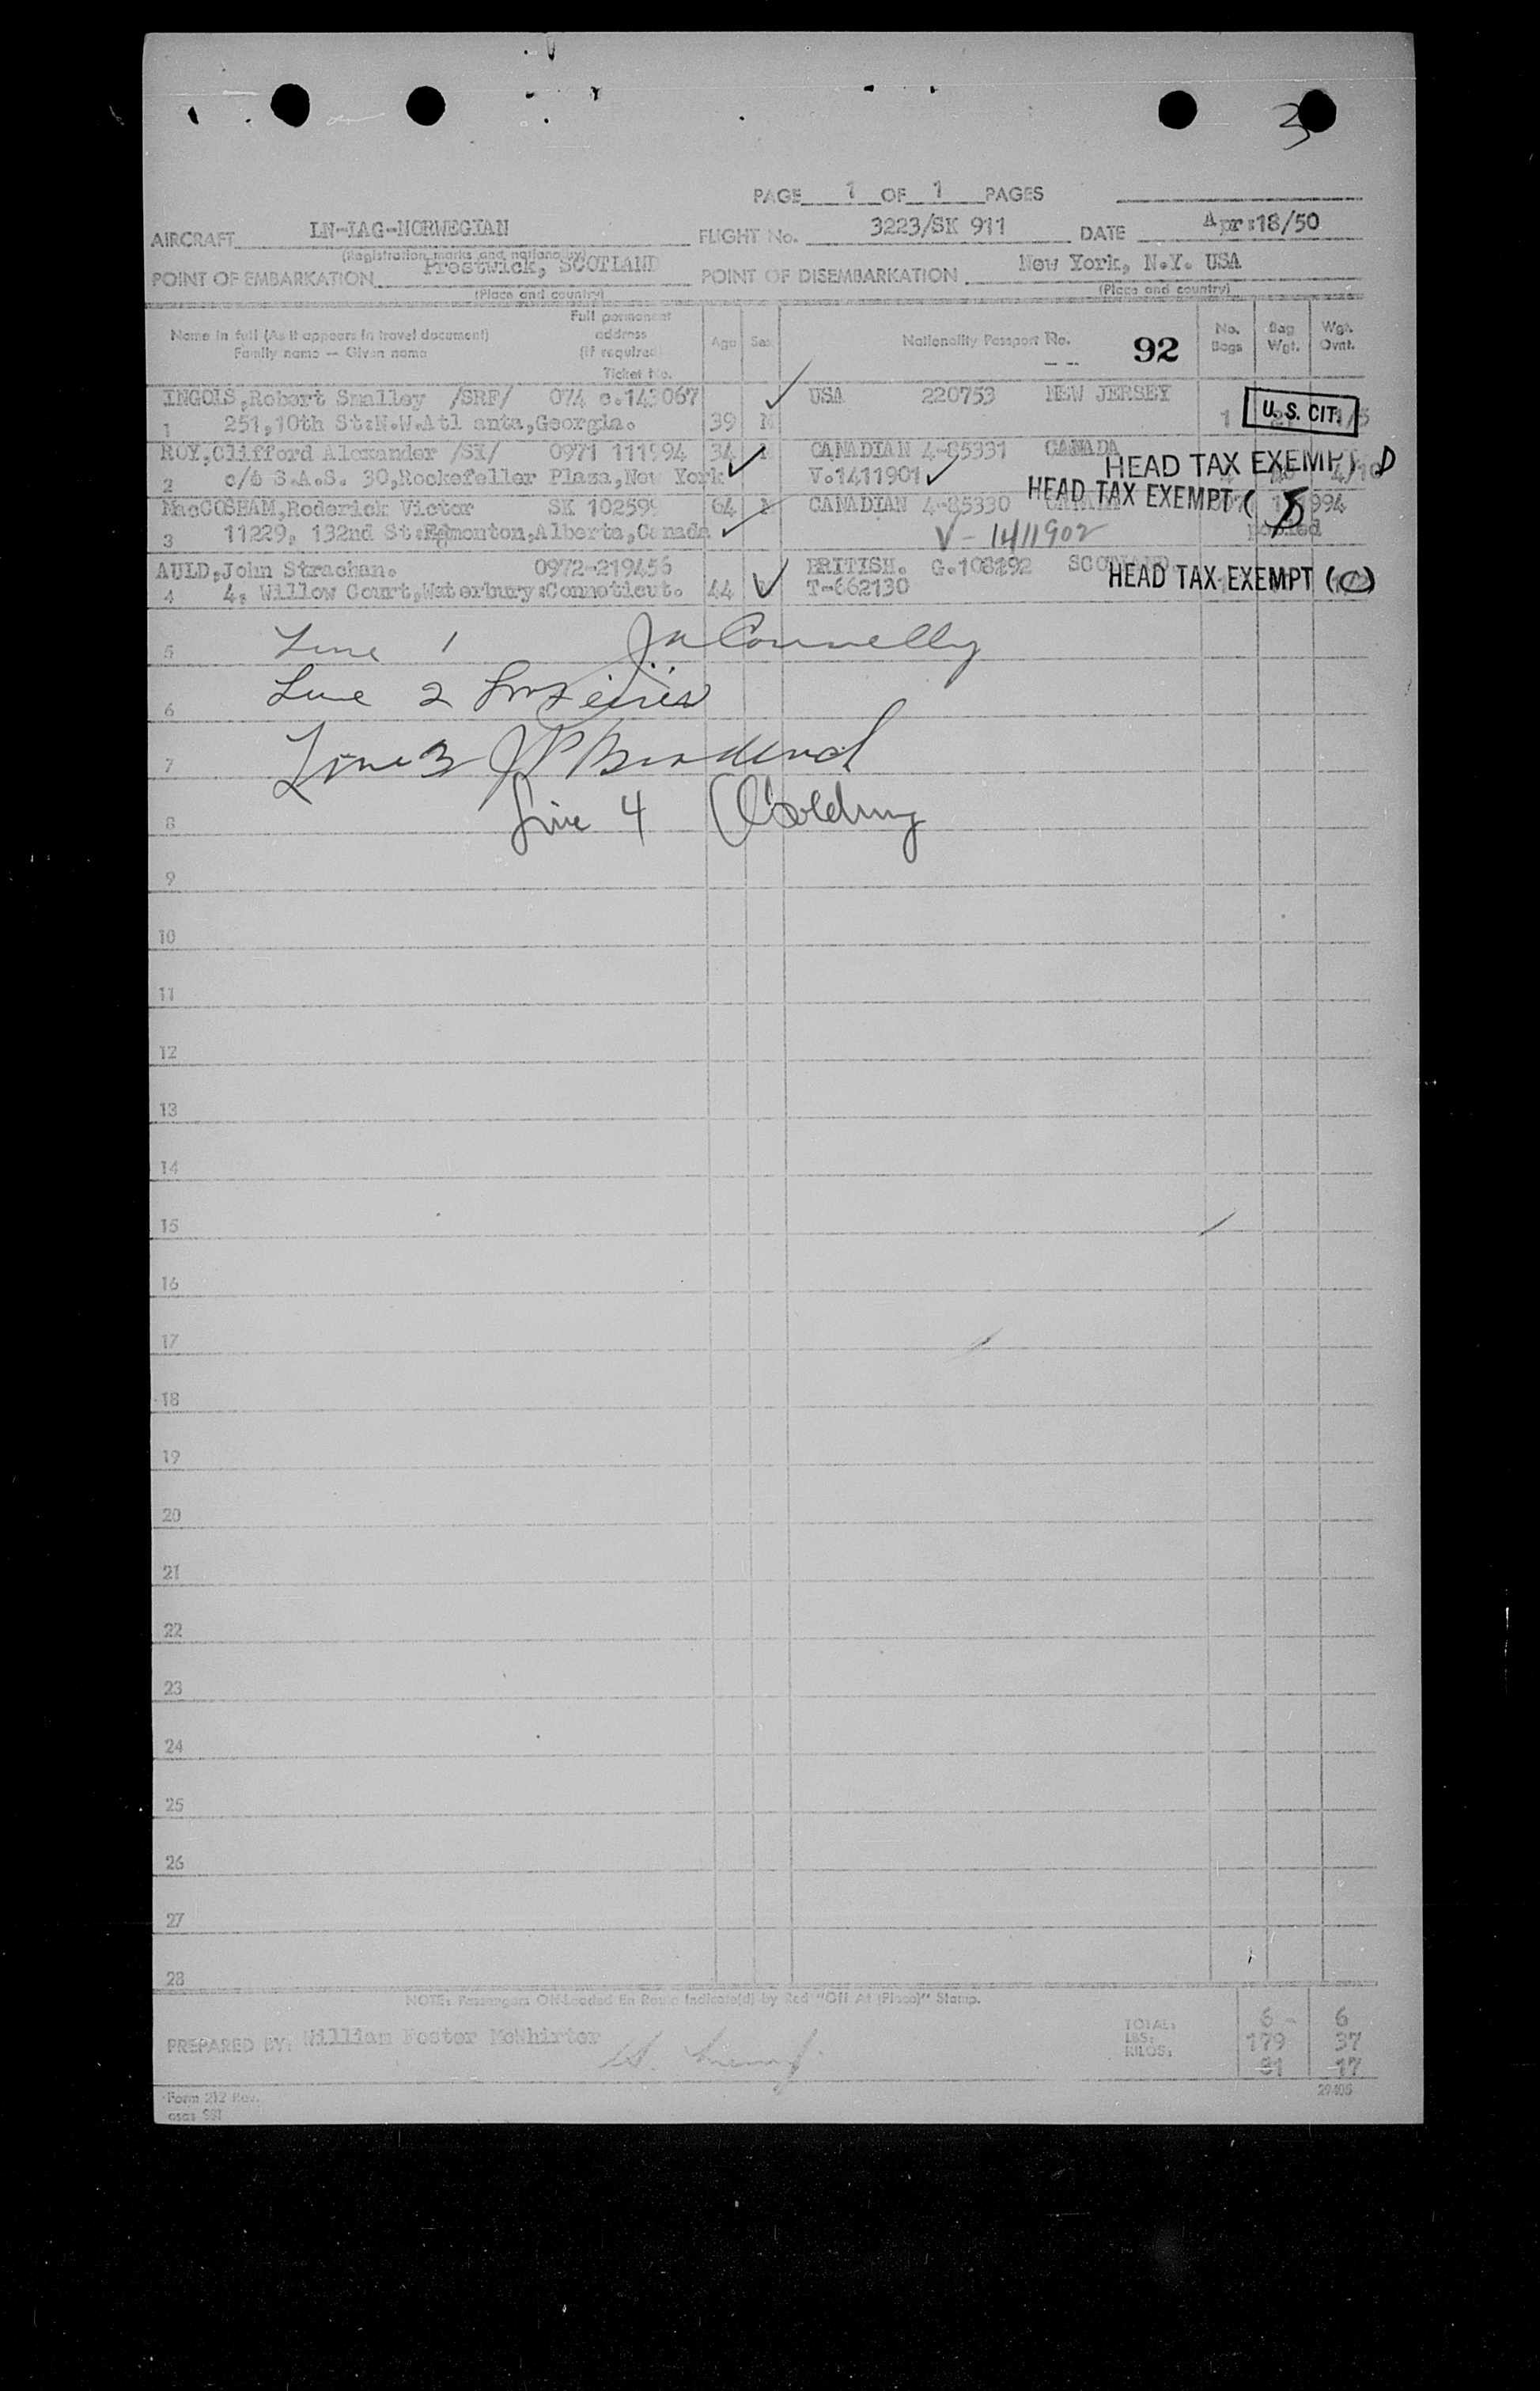 3
PAGE 1 OF 1 PAGES
AIRCRAFT LN-IAG-NORWEGIAN FLIGHT No. 3223/SK 911 DATE Apr:18/50
(Registration marks and nationality)
POINT OF EMBARKATION Prestwick, SCOTLAND POINT OF DISEMBARKATION New York, N.Y. USA
(Place and country) (Place and country)
Name in full (As it appears in travel document) Family name — Given name Full permanent address (If required) Ticket No. Age Sex Nationality Passport No. 92 No. Bags Bag Wgt. Wgt. Ovnt.
INGOLS,Robert Smalley /SRF/ 074 c.143067 USA 220753 NEW JERSEY
1 251,10th St:N.W.Atl anta,Georgia. 39 M 1 U. S. CIT.
ROY,Clifford Alexander /SK/ 0971 111994 34 M CANADIAN 4-85331 CANADA
2 c/o S.A.S. 30,Rockefeller Plaza,New York V.1411901 HEAD TAX EXEMPT D
MacCOSHAM,Roderick Victor SK 102599 64 M CANADIAN 4-85330 CANADA HEAD TAX EXEMPT ( 994
3 11229, 132nd St:Edmonton,Alberta,Canada V-1411902 pooled
AULD,John Strachan. 0972-219456 BRITISH. G.108192 SCOTLAND.
4 4, Willow Court,Waterbury:Connoticut. 44 T-662130 HEAD TAX EXEMPT (C)
5 Line 1 Connelly
6 Line 2
7 Line 3
8 Line 4 Golding
9
10
11
12
13
14
15
16
17
18
19
20
21
22
23
24
25
26
27
28
NOTE: Passengers Off-Loaded En Route Indicate(d) by Red "Off At (Place)" Stamp.
PREPARED BY: William Foster McWhirter
TOTAL: 6 - 6
LBS: 179 37
KILOS: 81 17
Form 212 Rev. 29406